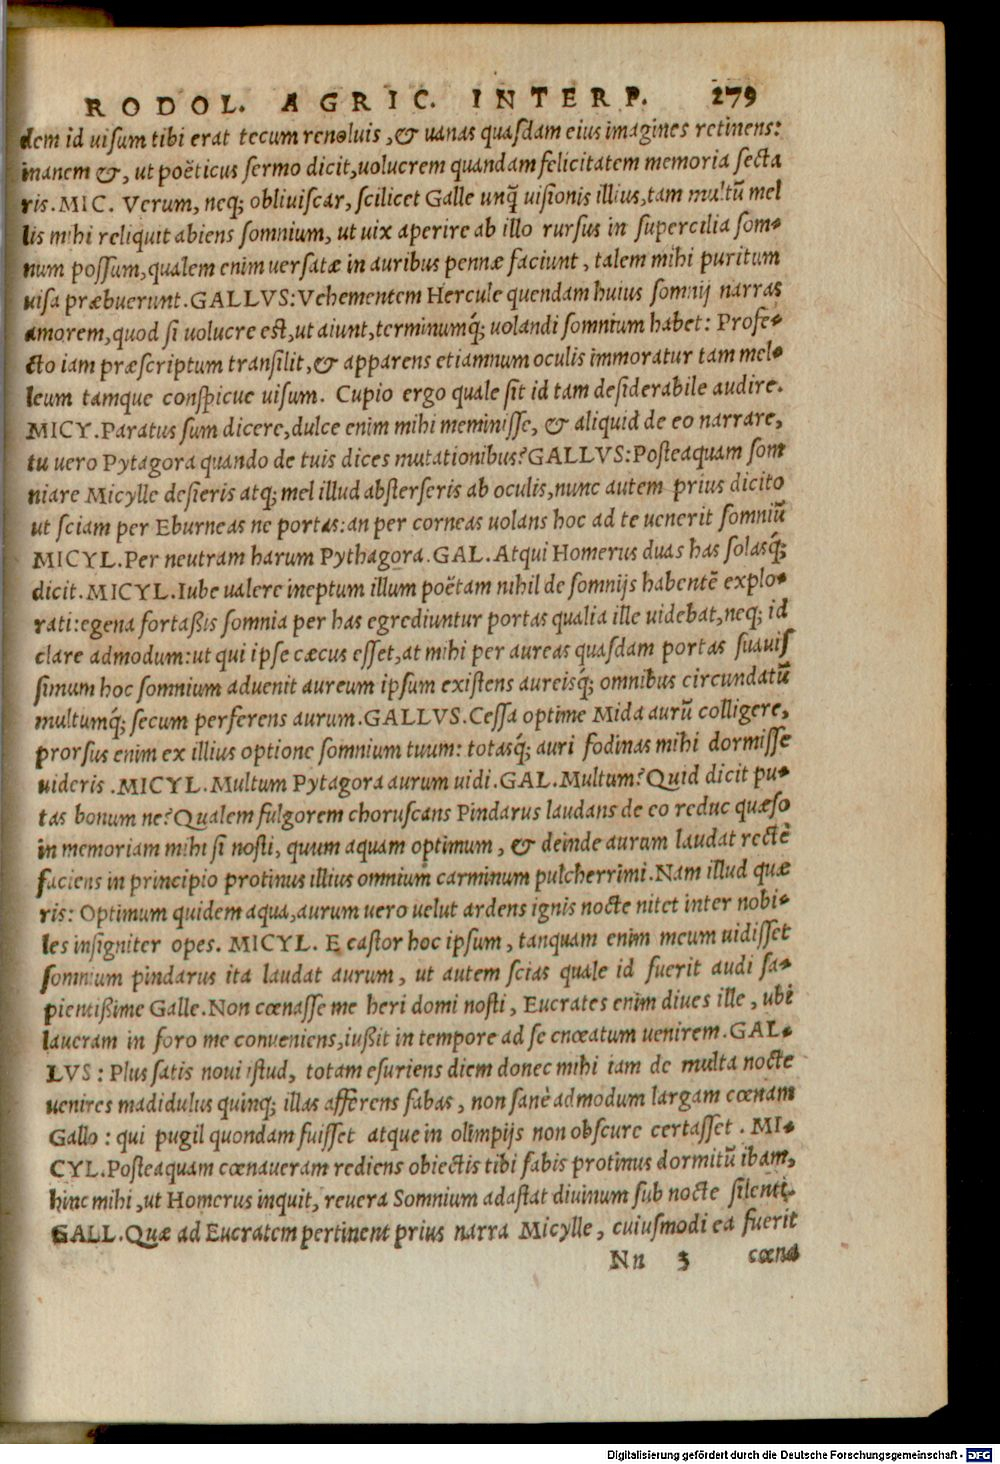 RODOL. AGRIC. INTERP. 279
dem id uisum tibi erat tecum renoluis, & uanas quasdam eius imagines retinens:
inanem &, ut poëticus sermo dicit, uolucrem quandam felicitatem memoria secta
ris. MIC. Verum, neq; obliuiscar, scilicet Galle unq̃ uisionis illius, tam multũ mel
lis mihi reliquit abiens somnium, ut uix aperire ab illo rursus in supercilia som-
num possum, qualem enim uersatæ in auribus pennæ faciunt, talem mihi puritum
uisa præbuerunt. GALLVS: Vehementem Hercule quendam huius somnij narras
amorem, quod si uolucre est, ut aiunt, terminumq́; uolandi somnium habet: Profe-
cto iam præscriptum transilit, & apparens etiamnum oculis immoratur tam mel-
leum tamque conspicue uisum. Cupio ergo quale sit id tam desiderabile audire.
MICY. Paratus sum dicere, dulce enim mihi meminisse, & aliquid de eo narrare,
tu uero Pytagora quando de tuis dices mutationibus? GALLVS: Posteaquam som
niare Micylle desieris atq; mel illud absterseris ab oculis, nunc autem prius dicito
ut sciam per Eburneas ne portas: an per corneas uolans hoc ad te uenerit somniũ
MICYL. Per neutram harum Pythagora. GAL. Atqui Homerus duas has solasq́;
dicit. MICYL. Iube ualere ineptum illum poëtam nihil de somnijs habentẽ explo-
rati: egena fortaßis somnia per has egrediuntur portas qualia ille uidebat, neq; id
clare admodum: ut qui ipse cæcus esset, at mihi per aureas quasdam portas suauis
simum hoc somnium aduenit aureum ipsum existens aureisq́; omnibus circundatũ
multumq́; secum perferens aurum. GALLVS. Cessa optime Mida aurũ colligere,
prorsus enim ex illius optione somnium tuum: totasq́; auri fodinas mihi dormisse
uideris. MICYL. Multum Pytagora aurum uidi. GAL. Multum? Quid dicit pu-
tas bonum ne? Qualem fulgorem choruscans Pindarus laudans de eo reduc quæso
in memoriam mihi si nosti, quum aquam optimum, & deinde aurum laudat rectè
faciens in principio protinus illius omnium carminum pulcherrimi. Nam illud quæ
ris: Optimum quidem aqua, aurum uero uelut ardens ignis nocte nitet inter nobi-
les insigniter opes. MICYL. E castor hoc ipsum, tanquam enim meum uidisset
somnium pindarus ita laudat aurum, ut autem scias quale id fuerit audi sa-
pientißime Galle. Non cœnasse me heri domi nosti, Eucrates enim diues ille, ubi
laueram in foro me conueniens, iußit in tempore ad se cnœatum uenirem. GAL-
LVS: Plus satis noui istud, totam esuriens diem donec mihi iam de multa nocte
uenires madidulus quinq; illas afferens fabas, non sanè admodum largam cœnam
Gallo: qui pugil quondam fuisset atque in olimpijs non obscure certasset. MI-
CYL. Posteaquam cœnaueram rediens obiectis tibi fabis protinus dormitũ ibam,
hinc mihi, ut Homerus inquit, reuera Somnium adastat diuinum sub nocte silenti.
GALL. Quæ ad Eucratem pertinent prius narra Micylle, cuiusmodi ea fuerit
Nn 3 cœna
Digitalisierung gefördert durch die Deutsche Forschungsgemeinschaft - DFG